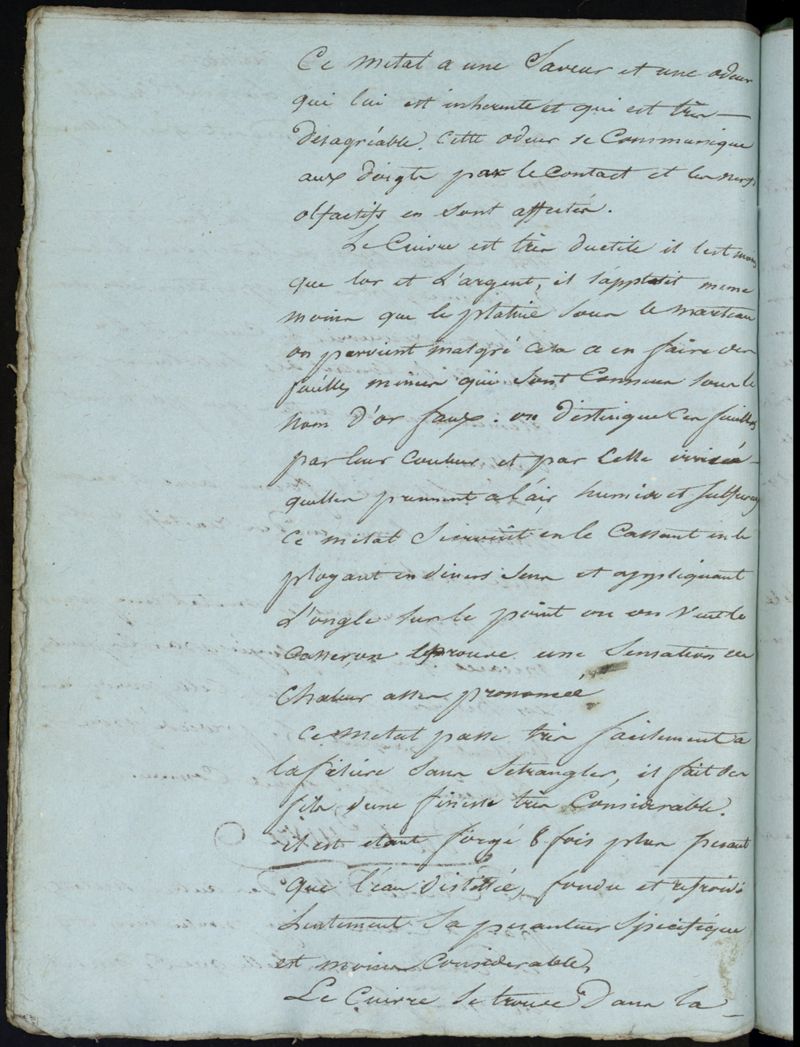 Ce metal a une Saveur et une odeur
qui lui est inherente et qui est très
desagréable. Cette odeur se Communique
aux doigts par le Contact et les nerfs
olfactifs en sont affectés.
Le Cuivre est très ductile il l'est moins
que l'or et L'argent, il s'applatit meme
moins que le platine sous le marteau
on parvient malgré cela a en faire des
feuilles minces qui sont Connues sous le
nom d'or faux. on distingue Ces feuilles
par leur Couleur et par Celle
quelles prennent a l'air humide et sulfureux
Ce metal en le Cassant en le
ployant en divers sens et appliquant
L'ongle sur le point ou on veut le
Casser, on eprouve une Sensation de
Chaleur assez prononcée
Ce metal passe très facilement a
la filiere sans s'etrangler, il fait des
fils d'une finesse très Considerable.
il est etant forgé 8 fois plus pesant
que l'eau distillée, fondu et refroidi
Lentement sa pesanteur Spécifique
est moins Considerable,
Le Cuivre se trouve Dans la